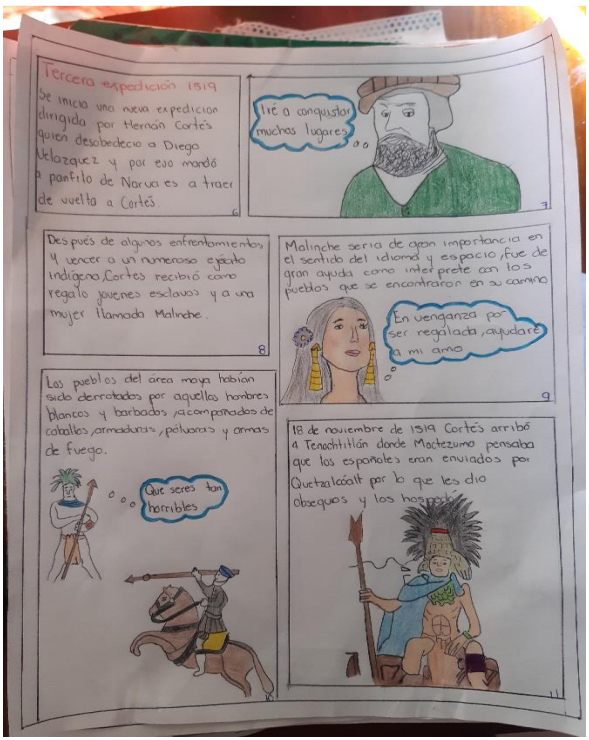 Tercera expedición 1519
Se inicia una nueva expedición
dirigida por Hernán Cortés
quien desobedecio a Diego
Velazquez y por eso mandó
a panfilo de Narvaes a traer
de vuelta a Cortés.
6
Iré a conquistar
muchos lugares
7
Después de algunos enfrentamientos
y vencer a un numeroso ejécito
indígena, Cortes recibió como
regalo jovenes esclavos y a una
mujer llamada Malinche.
8
Malinche seria de gran importancia en
el sentido del idioma y espacio, fue de
gran ayuda como interprete con los
pueblos que se encontraron en su camino
En venganza por
ser regalada, ayudaré
a mi amo
9
Los pueblos del área maya habían
sido derrotados por aquellos hombres
blancos y barbados, acompañados de
caballos, armaduras, pólvoras y armas
de fuego.
Que seres tan
horribles
18 de noviembre de 1519 Cortés arribó
a Tenochtitlán donde Moctezuma pensaba
que los españoles eran enviados por
Quetzalcóalt por lo que les dio
obsequios y los hospedó
11